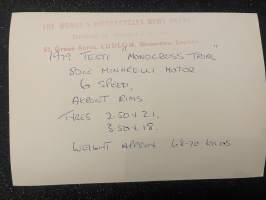 THE WORLD'S MOTORCYCLES NEWS
"1979 TESTI MONOCROSS TRIAL"
80cc MINARELLI MOTOR
6 SPEED,
AKRONT RIMS
TYRES 2.50 x 21,
3.50 x 18.
WEIGHT APPROX 68-70 KILOS